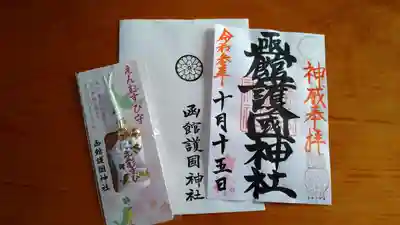 えんむすび守
函館護国神社
函館護国神社
神威奉拝
函館護國神社
令和参年
十月十五日